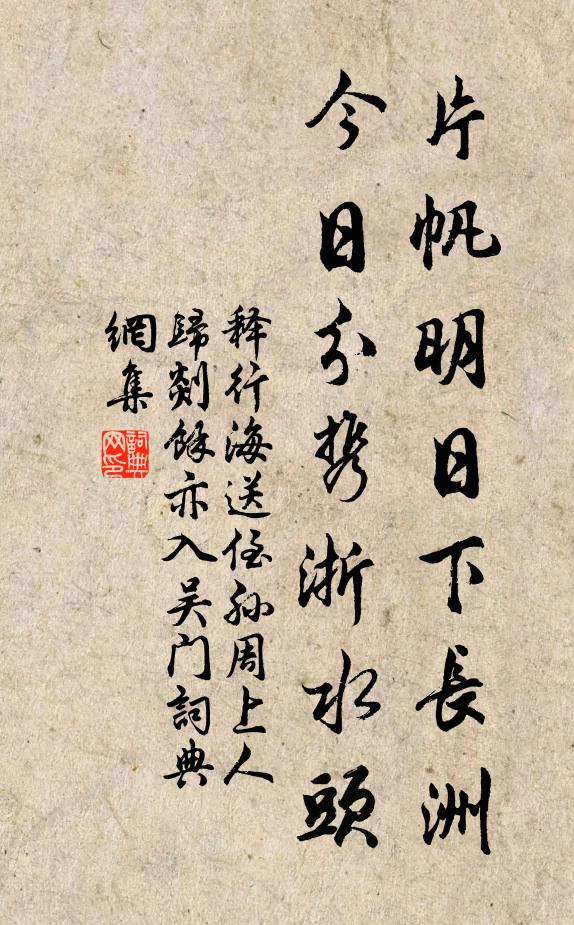 片帆明日下長洲
今日分携浙水頭
释行海送侄孙周上人
歸剡餘亦入吴门詞典
網集
詞典
网印